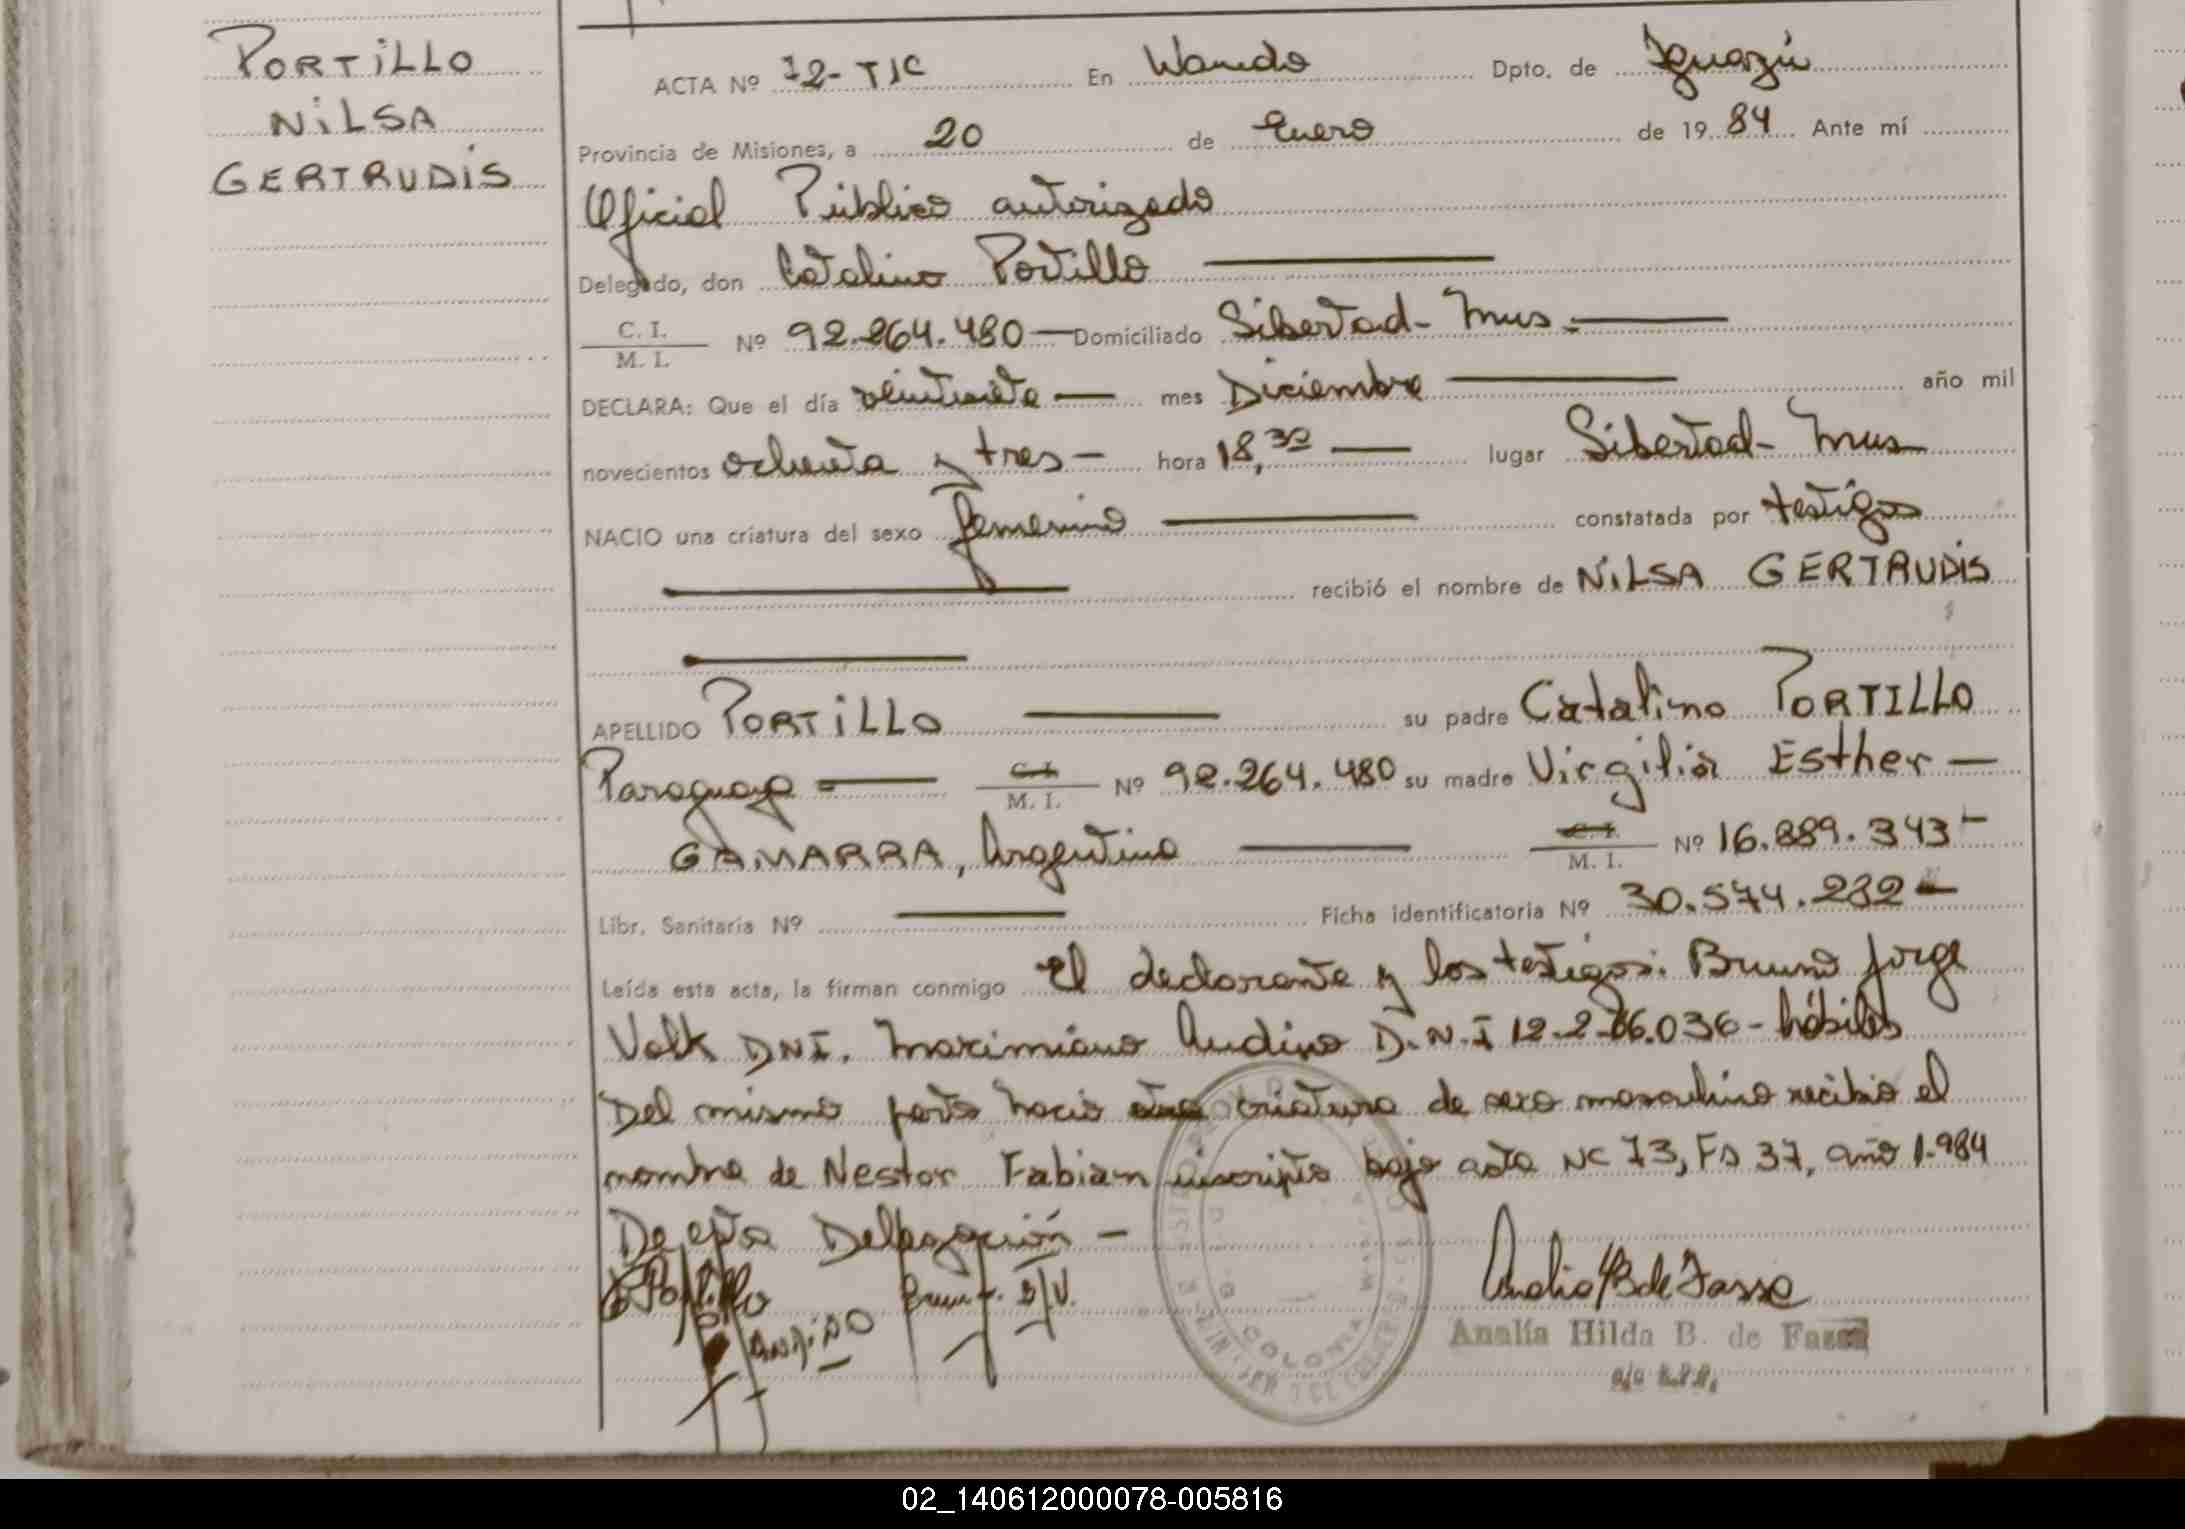 PORTILLO
NILSA
GERTRUDIS
ACTA Nº 72- TIC En Wanda Dpto. de Iguazú
Provincia de Misiones, a 20 de Enero de 19 84 Ante mí
Oficial Público autorizado
Delegado, don Catalino Portillo
C. I.
M. I.
Nº 92.264.480 Domiciliado Libertad- Mnes.
DECLARA: Que el día veintisiete mes Diciembre año mil
novecientos ochenta y tres- hora 18,30 lugar Libertad- Mnes
NACIO una criatura del sexo femenino constatada por testigos
recibió el nombre de NILSA GERTRUDIS
APELLIDO PORTILLO su padre Catalino PORTILLO
Paraguayo C. I. M. I. Nº 92.264.480 su madre Virgilia Esther
GAMARRA, Argentina C. I. M. I. Nº 16.889.343
Libr. Sanitaria Nº Ficha identificatoria Nº 30.574.282
Leída esta acta, la firman conmigo El declarante y los testigos: Bruno Jorge
Volk DNI. Maximiano Andino D.N.I 12.2 6.036- hábiles
Del mismo parto nacio otra criatura de sexo masculino recibio el
nombre de Nestor Fabian inscripto bajo acta Nº 73, Fº 37, año 1.984
De esta Delegación -
Portillo
Andino
Analia H B de Fasse
COLONIA
Analía Hilda B. de
02_140612000078-005816